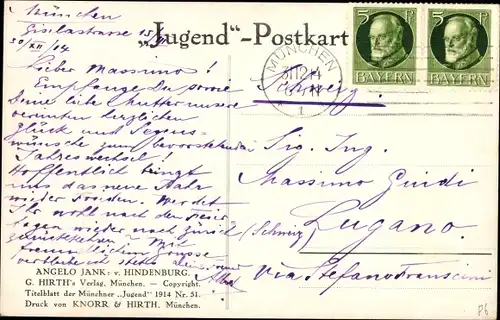 München
Giselastrasse 15/III
30/XII 14
„Jugend“-Postkarte
5 P
BAYERN
5 P
BAYERN
MÜNCHEN
31.12.14
1
Lieber Massimo!
Empfange Du sowie
Deine liebe Mutter unsere
vereinten herzlichen
Glück und Segens-
wünsche zum bevorstehenden
Jahreswechsel!
Hoffentlich bringt
uns das neue Jahr
wieder Frieden. Werdet
Ihr wohl nach den
wieder nach Zürich
zurückkehren? Mit
Schweiz
Sig. Ing.
Massimo Guidi
Lugano.
(Schweiz)
Via Stefano Franscini
ANGELO JANK: v. HINDENBURG.
G. HIRTH's Verlag, München. — Copyright.
Titelblatt der Münchner „Jugend“ 1914 Nr. 51.
Druck von KNORR & HIRTH, München.
P6